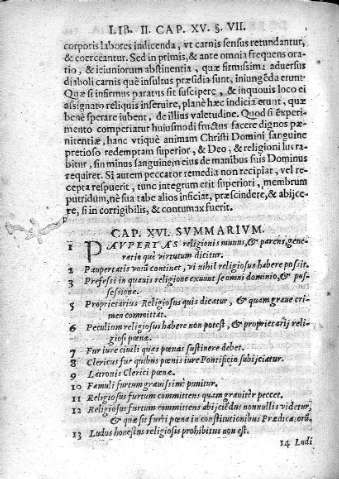 LIB. II. CAP. XV. §. VII.
corporis labores indicenda, vt carnis sensus retundantur,
& coerceantur. Sed in primis, & ante omnia frequens ora-
tio, & ieiuniorum abstinentia, quæ firmissima aduersus
diaboli carnisquè insultus præsidia sunt, iniungẽda erunt.
Quæ si infirmus paratus sit suscipere, & in quouis loco ei
assignato reliquis inseruire, planè hæc indicia erunt, quæ
benè sperare iubent, de illius valetudine. Quod si experi-
mento comperiatur huiusmodi fructus facere dignos pæ-
nitentiæ, hanc vtiquè animam Christi Domini sanguine
pretioso redemptam superior, & Deo, & religioni lucra
bitur, sin minus sanguinem eius de manibus suis Dominus
requiret. Si autem peccator remedia non recipiat, vel re-
cepta respuerit, tunc integrum erit superiori, membrum
putridum, nè sua tabe alios inficiat, præscindere, & abijce-
re, si in corrigibilis, & contumax fuerit.
CAP. XVI. SVMMARIVM.
1 PAVPERTAS religionis murus, & parens, gene-
ratrix què virtutum dicitur.
2 Paupertatis votũ continet, vi nihil religiosus habere possit.
3 Professi in quauis religione exuunt se omni dominio, & pos-
sessione.
5 Proprietarius Religiosus quis dicatur, & quam graue cri-
men committat.
6 Peculium religiosus habere non potest, & proprietarij reli-
giosi pœna.
7 Fur iure ciuili quas pœnas sustinere debet.
8 Clericus fur quibus pœnis iure Pontificio subijciatur.
9 Latronis Clerici pœnæ.
10 Famuli furtum grauissimè punitur.
11 Religiosus furtum committens quam grauiter peccet.
12 Religiosus furtum committens abijciẽdus nonnullis videtur,
& quæ sit furti pœna in constitutionibus Prædica. ord.
13 Ludus honestus religiosis prohibitus non est.
14 Ludi